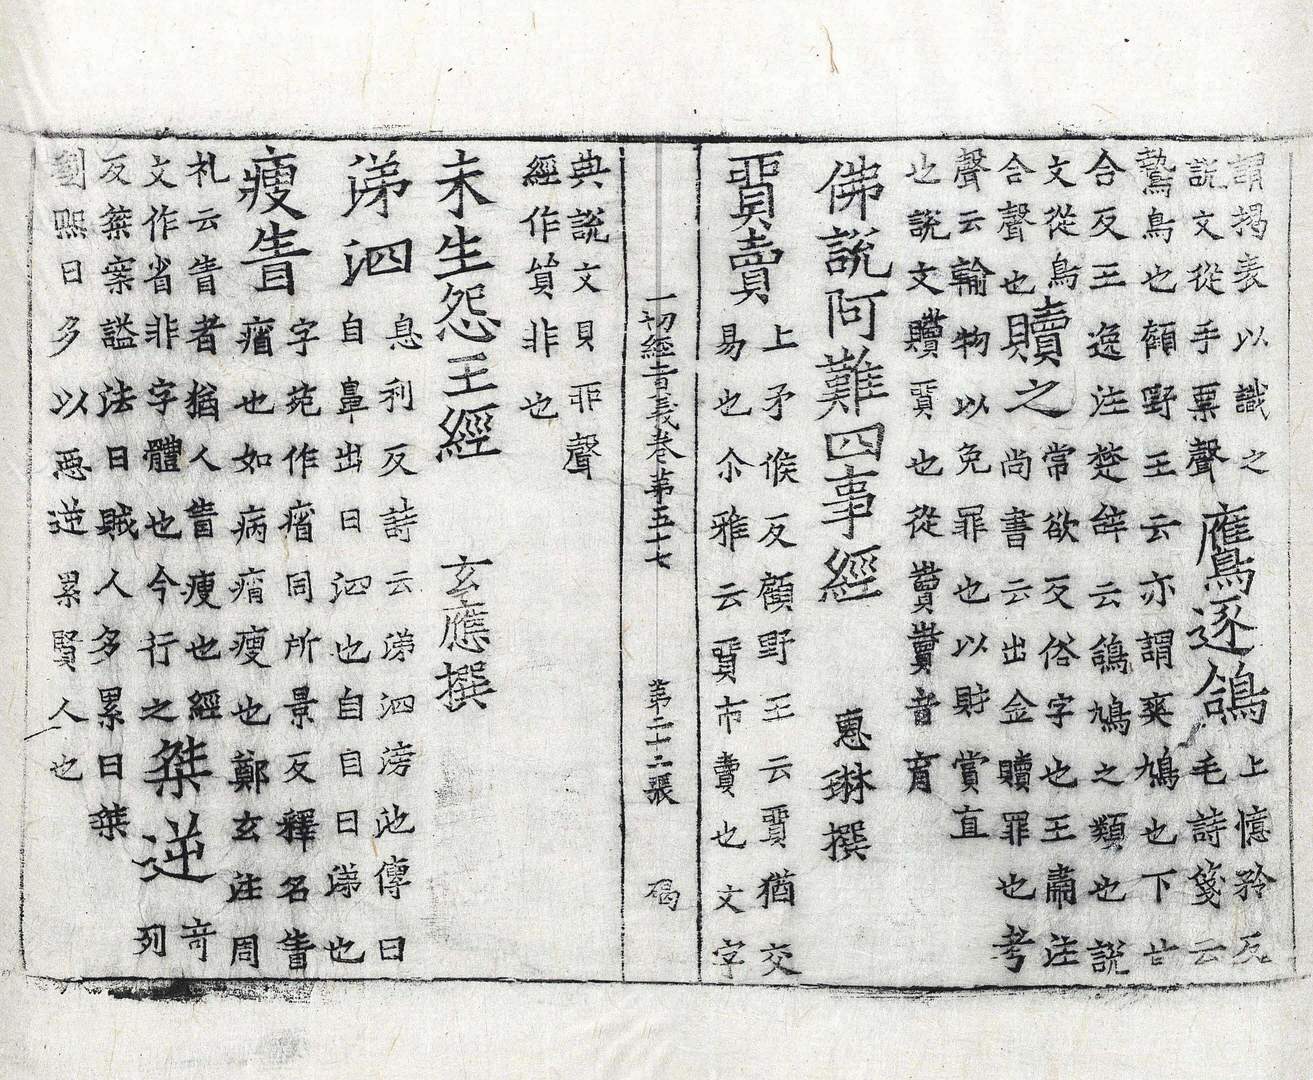 謂揭表以識之
説文從手票聲
鷹逐鴿
上憶矜反
毛詩箋云
鷙鳥也顧野王云亦謂爽鳩也下甘
合反王逸注楚辭云鴿鳩之類也説
文從鳥
合聲也
贖之
常欲反俗字也王肅注
尚書云出金贖罪也考
聲云輸物以免罪也以財賞直
也説文贖貿也從賣賣音育
佛説阿難四事經 惠琳撰
貿賣
上矛候反顧野王云貿猶交
易也尒雅云貿市賣也文字
一切經音義卷第五十七 第二十二張 碣
典説文貝丣聲
經作貿非也
未生怨王經 玄應撰
涕泗
息利反詩云涕泗滂池傳曰
自鼻出曰泗也自目曰涕也
瘦眚
字苑作㾪同所景反釋名眚
㾪也如病㾪瘦也鄭玄注周
礼云眚者猶人眚瘦也經
文作省非字體也今行之
桀逆
奇
列
反桀案謚法曰賊人多累曰桀
劉熙曰多以惡逆累賢人也